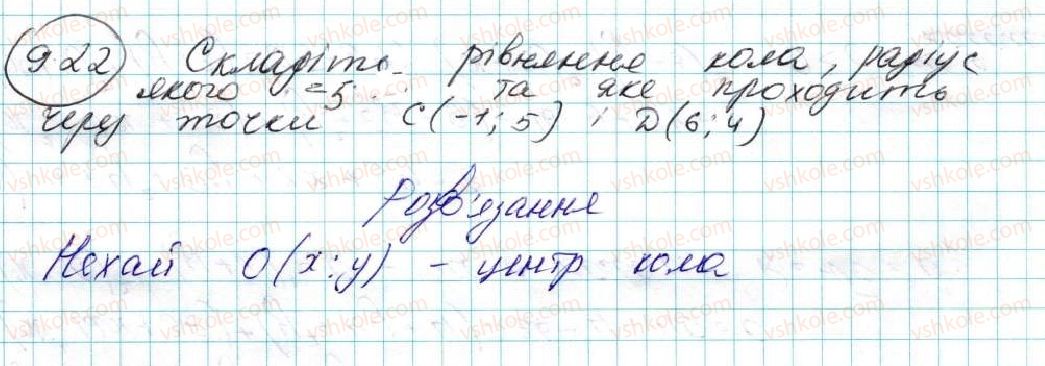 9.22 Складіть рівняння кола, радіус
якого = 5 та яке проходить
через точки C(-1; 5) і D(6; 4)
Розв'язання
Нехай O(x; y) - центр кола